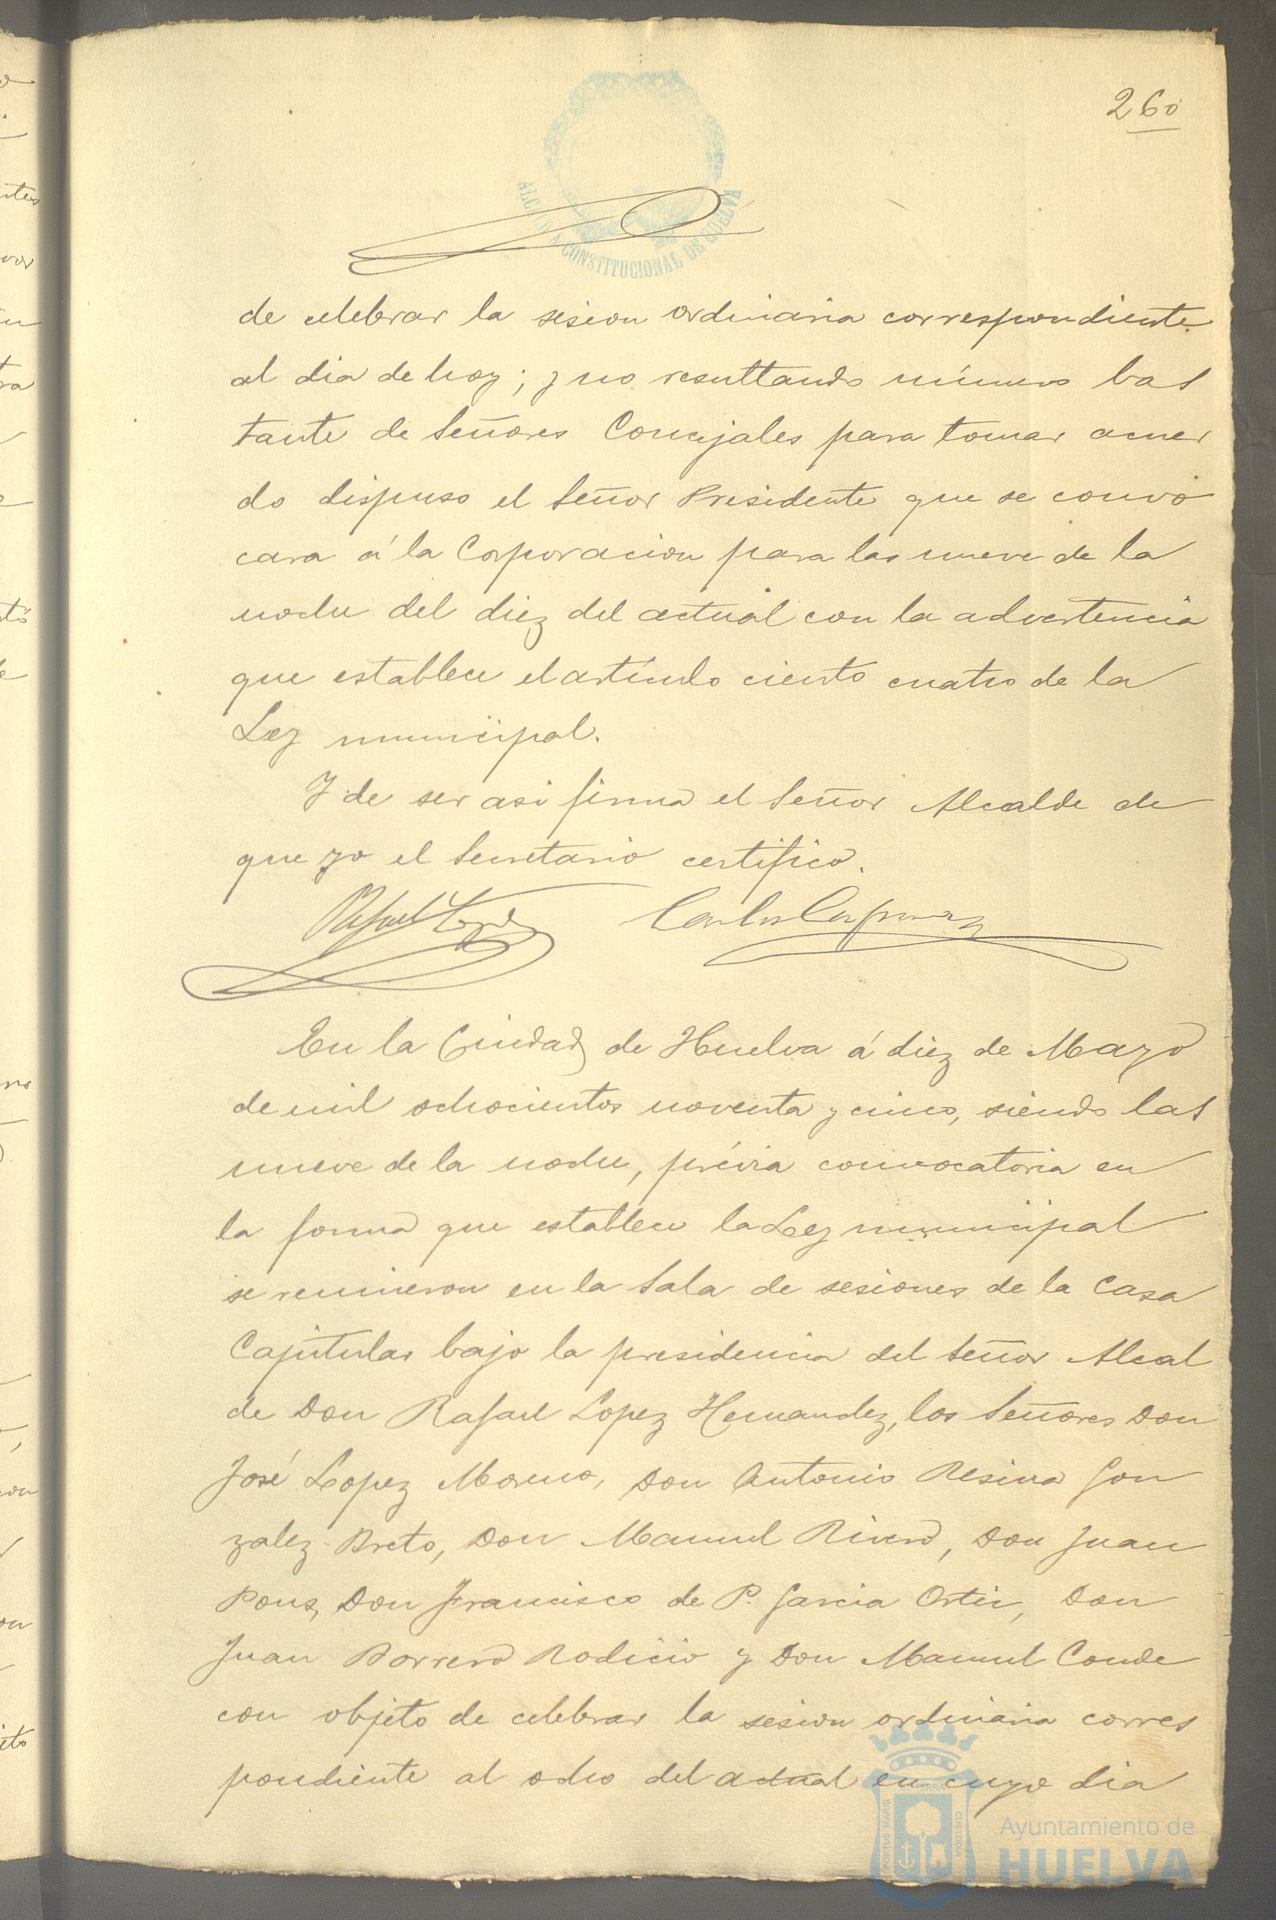 260
ALCALDIA CONSTITUCIONAL DE HUELVA
de celebrar la sesion ordinaria correspondiente
al dia de hoy; y no resultando número bas
tante de Señores Concejales para tomar acuer
do dispuso el Señor Presidente que se convo
cara á la Corporacion para las nueve de la
noche del diez del actual con la advertencia
que establece el artículo ciento cuatro de la
Ley municipal.
Y de ser asi firma el Señor Alcalde de
que yo el Secretario certifico.
Rafael Lopez Carlos
En la Ciudad de Huelva á diez de Mayo
de mil ochocientos noventa y cinco, siendo las
nueve de la noche, prévia convocatoria en
la forma que establece la Ley municipal
se reunieron en la Sala de sesiones de la Casa
Capitular bajo la presidencia del Señor Alcal
de Don Rafael Lopez Hernandez, los Señores Don
José Lopez Moreno, Don Antonio Resina Gon
zalez Breto, Don Manuel Rivero, Don Juan
Pons, Don Francisco de P. Garcia Ortiz, Don
Juan Borrero Rodicio y Don Manuel Conde
con objeto de celebrar la sesion ordinaria corres
pondiente al ocho del actual en cuyo dia
Ayuntamiento de
HUELVA